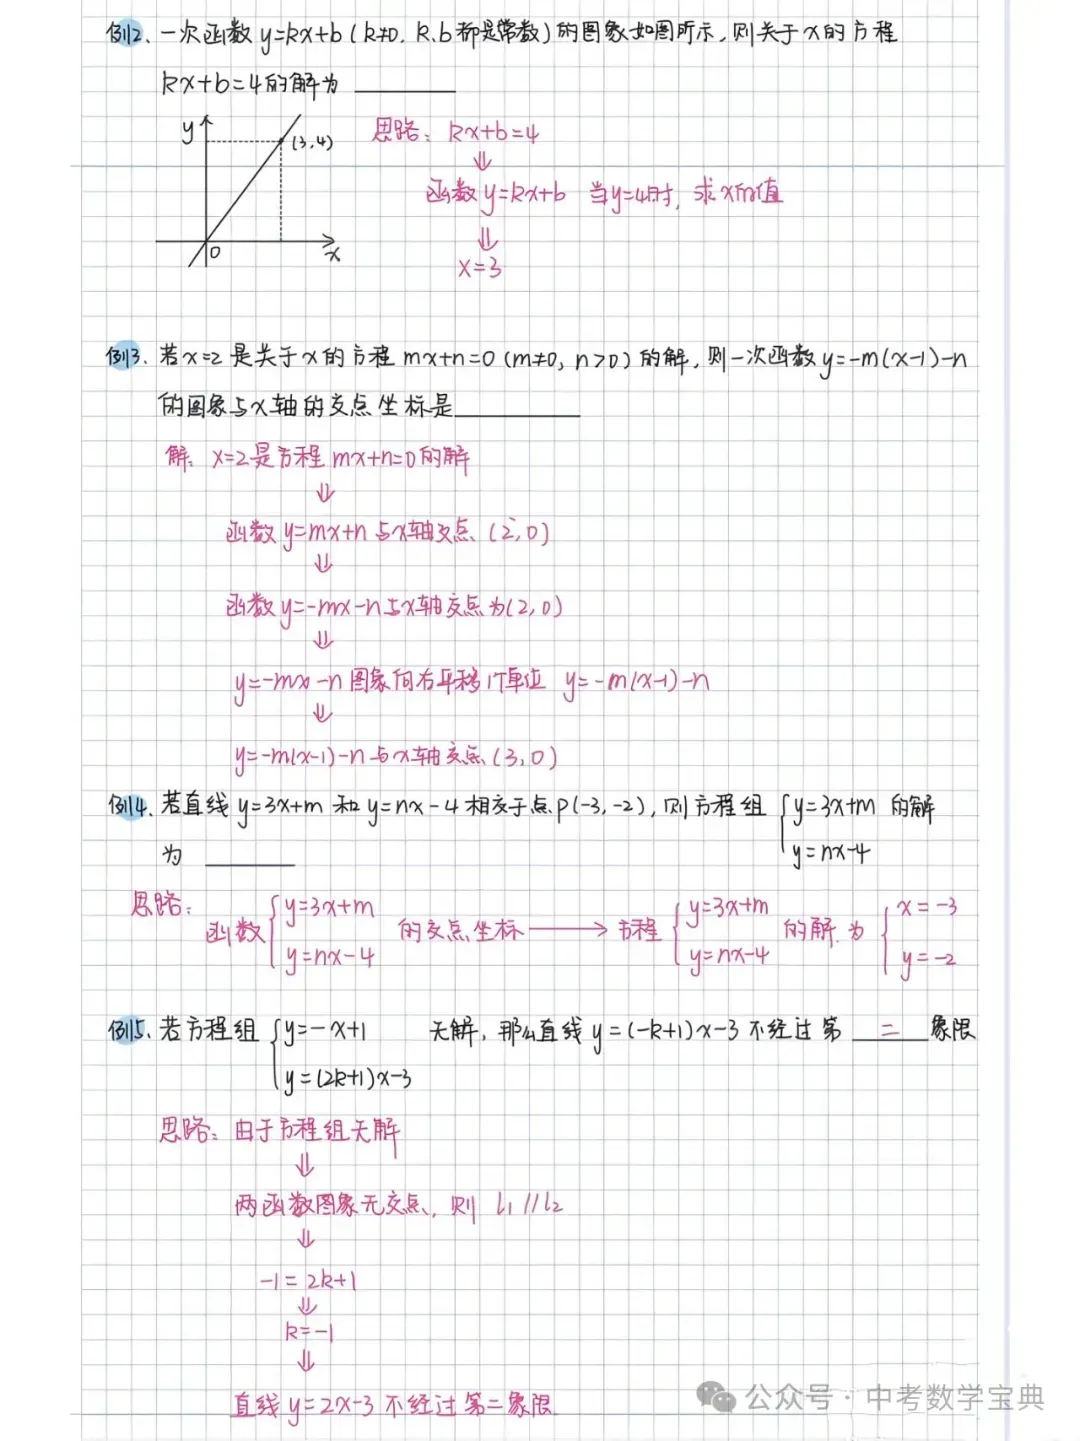 例2、一次函数 y=kx+b (k≠0, k.b都是常数)的图象如图所示,则关于x的方程
kx+b=4的解为 ______
y
(3,4)
0
x
思路: kx+b=4
⇓
函数 y=kx+b 当y=4时, 求x的值
⇓
x=3
例3、若x=2是关于x的方程 mx+n=0 (m≠0, n>0) 的解,则一次函数 y=-m(x-1)-n
的图象与x轴的交点坐标是______
解: x=2是方程 mx+n=0的解
⇓
函数 y=mx+n 与x轴交点 (2,0)
⇓
函数 y=-mx-n与x轴交点为(2,0)
⇓
y=-mx-n 图象向右平移1个单位 y=-m(x-1)-n
⇓
y=-m(x-1)-n与x轴交点(3,0)
例4、若直线 y=3x+m 和 y=nx-4 相交于点P(-3,-2),则方程组 {y=3x+m 的解
y=nx-4
为 ______
思路:
函数 {y=3x+m 的交点坐标 → 方程 {y=3x+m 的解为 {x=-3
y=nx-4 y=nx-4 y=-2
例5、若方程组 {y=-x+1 无解,那么直线 y=(-k+1)x-3 不经过第 二 象限
y=(2k+1)x-3
思路: 由于方程组无解
⇓
两函数图象无交点, 则 l₁//l₂
⇓
-1=2k+1
⇓
k=-1
⇓
直线 y=2x-3 不经过第二象限
公众号·中考数学宝典